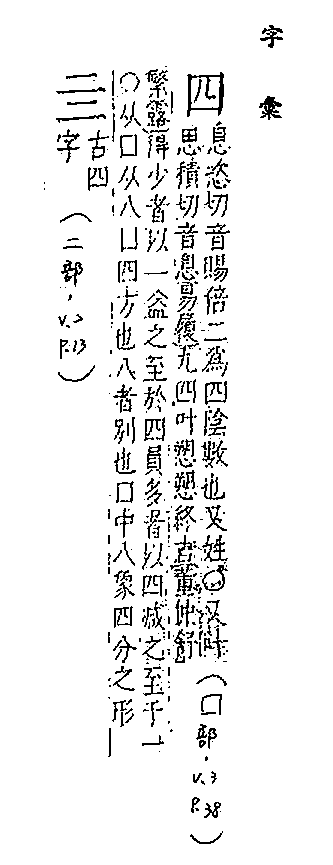 字彙
四
息恣切音賜倍二為四陰數也又姓○又叶
思積切音息易履九四叶愬愬終吉董仲舒
(口部, V.3 P.38)
繁露得少者以一益之至於四員多者以四減之至于一
○从口从八口四方也八者別也口中八象四分之形
亖
古四
字
(二部, P.13)